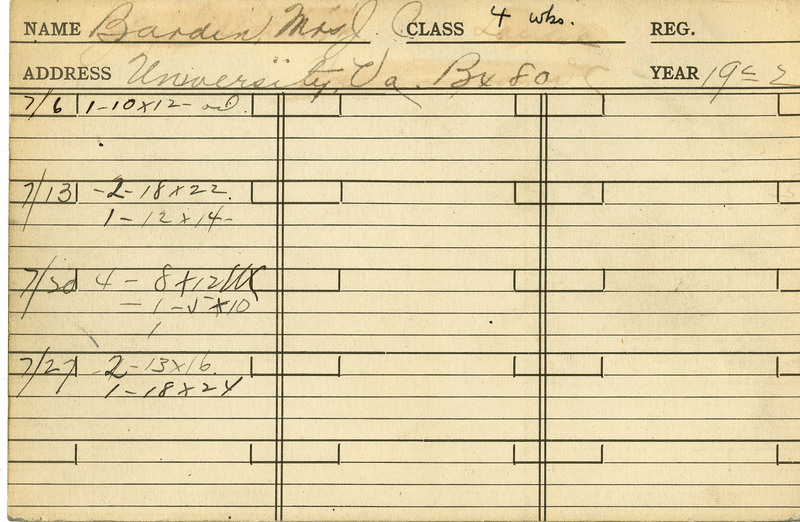 NAME Bardin, Mrs J. C. CLASS 4 wks. REG.
ADDRESS University, Va. Bx 80 YEAR
7/6 1-10x12-
7/13 -2-18x22.
1-12x14-
7/20 4 - 8x12
- 1-5x10
1
7/27 2-13x16.
1-18x24